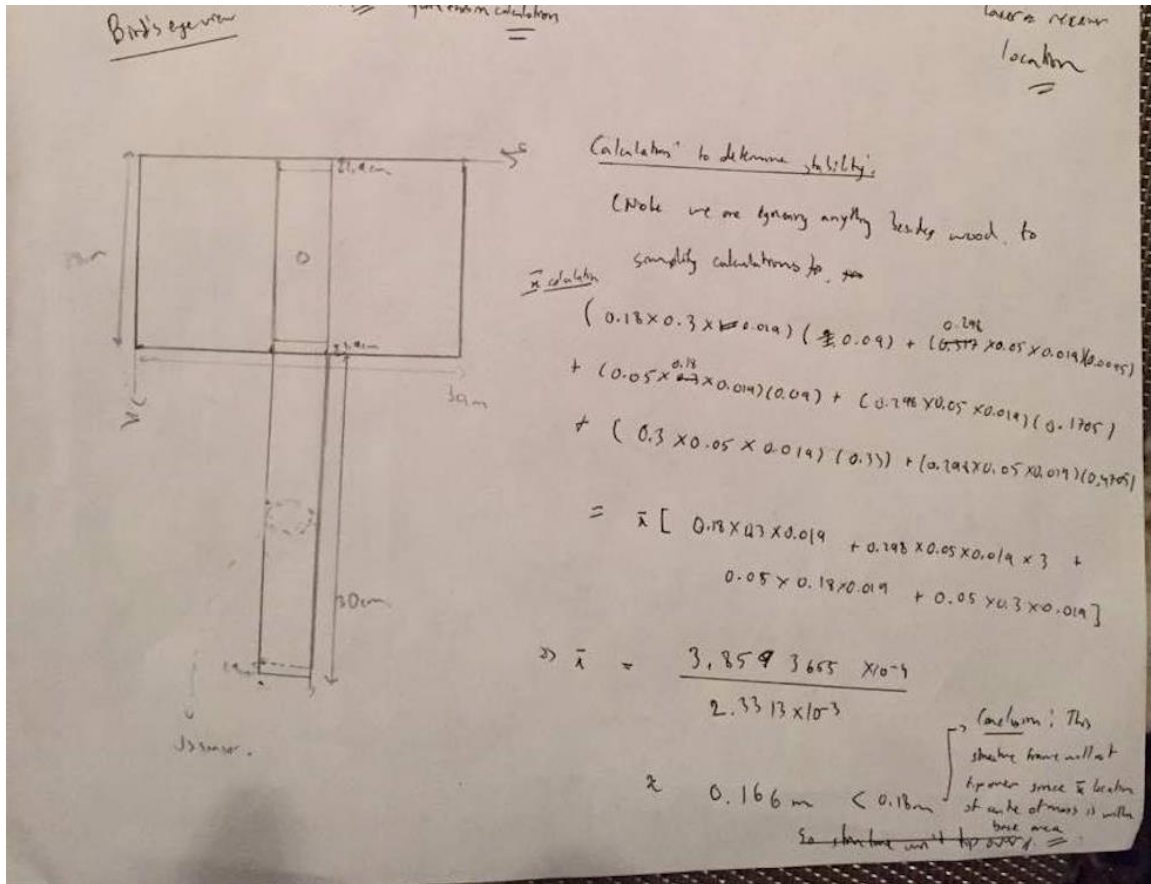 Bird's eye view
calculation
location
Calculations to determine stability.
(Note we are ignoring anything besides wood, to
simplify calculations
x̄ calculation
(0.18 × 0.3 × 0.019)(0.09) + (0.298 × 0.05 × 0.019)(0.0095)
+ (0.05 × 0.18 × 0.019)(0.09) + (0.298 × 0.05 × 0.019)(0.1705)
+ (0.3 × 0.05 × 0.019)(0.33) + (0.298 × 0.05 × 0.019)(0.4705)
= x̄ [ 0.18 × 0.3 × 0.019 + 0.298 × 0.05 × 0.019 × 3 +
0.05 × 0.18 × 0.019 + 0.05 × 0.3 × 0.019 ]
⇒ x̄ = 3.859 3655 × 10⁻⁴
2.3313 × 10⁻³
≈ 0.166 m < 0.18m
Conclusion: This
structure frame will not
tip over since x̄ location
of centre of mass is within
base area
So structure won't tip over.
30cm
30cm